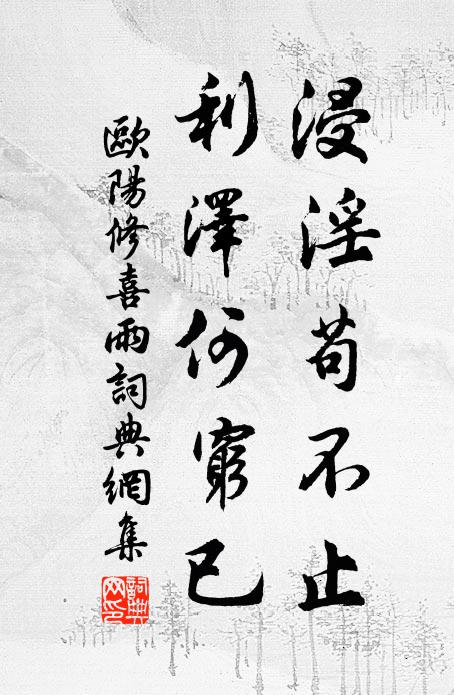 浸淫苟不止
利澤何窮已
歐陽修喜雨詞典網集
詞典
網印